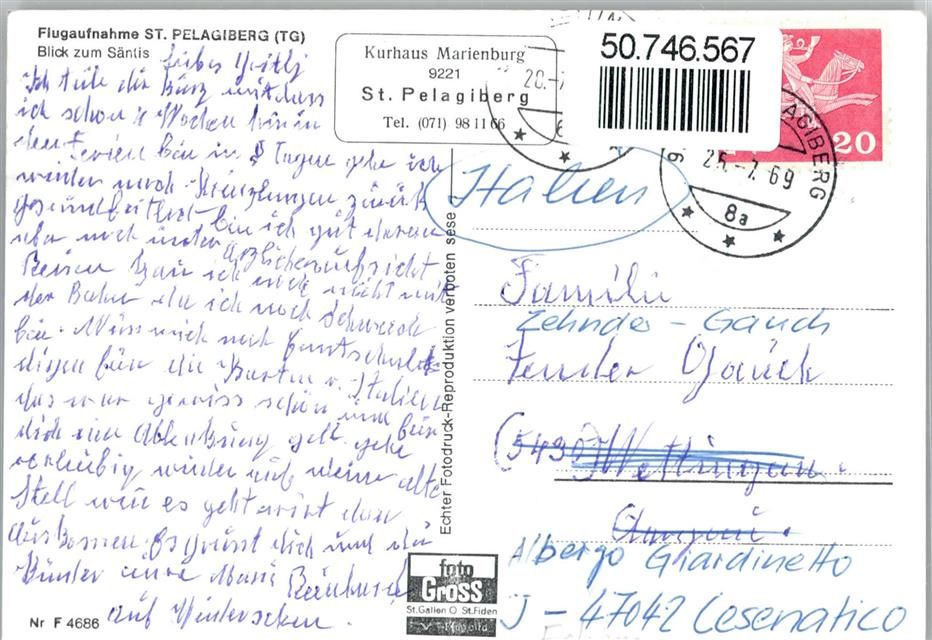 Flugaufnahme ST. PELAGIBERG (TG)
Blick zum Säntis
Kurhaus Marienburg
9221
St. Pelagiberg
Tel. (071) 98 11 66
50.746.567
20
AGIBERG
25.-7.69
8a
Italien
Ich teile dir kurz mit dass
ich schon 4 Wochen hier in
den Ferien bin in 8 Tagen gehe ich
wieder nach Kreuzlingen zurück
bin ich gut daran
aber noch unter Ärzlicheraufsicht
Reisen kan ich noch nicht mit
der Bahn da ich noch Schwach
bin. Muss mich noch entschul
digen für die Karten v. Italien
das war gewiss schön und für
dich eine Ablenkung gell gehe
wieder auf meine alte
Stell wie es geht wird dan
auskommen. Es grüsst dich und die
Kinder eure Marie
auf Wiedersehen.
Echter Fotodruck-Reproduktion verboten
Familie
Zehnder - Gauch
Zender Gauch
(5430) Wettingen.
Aargau.
Albergo Giardinetto
I - 47042 Cesenatico
foto
GROSS
St. Gallen O St. Fiden
Nr F 4686